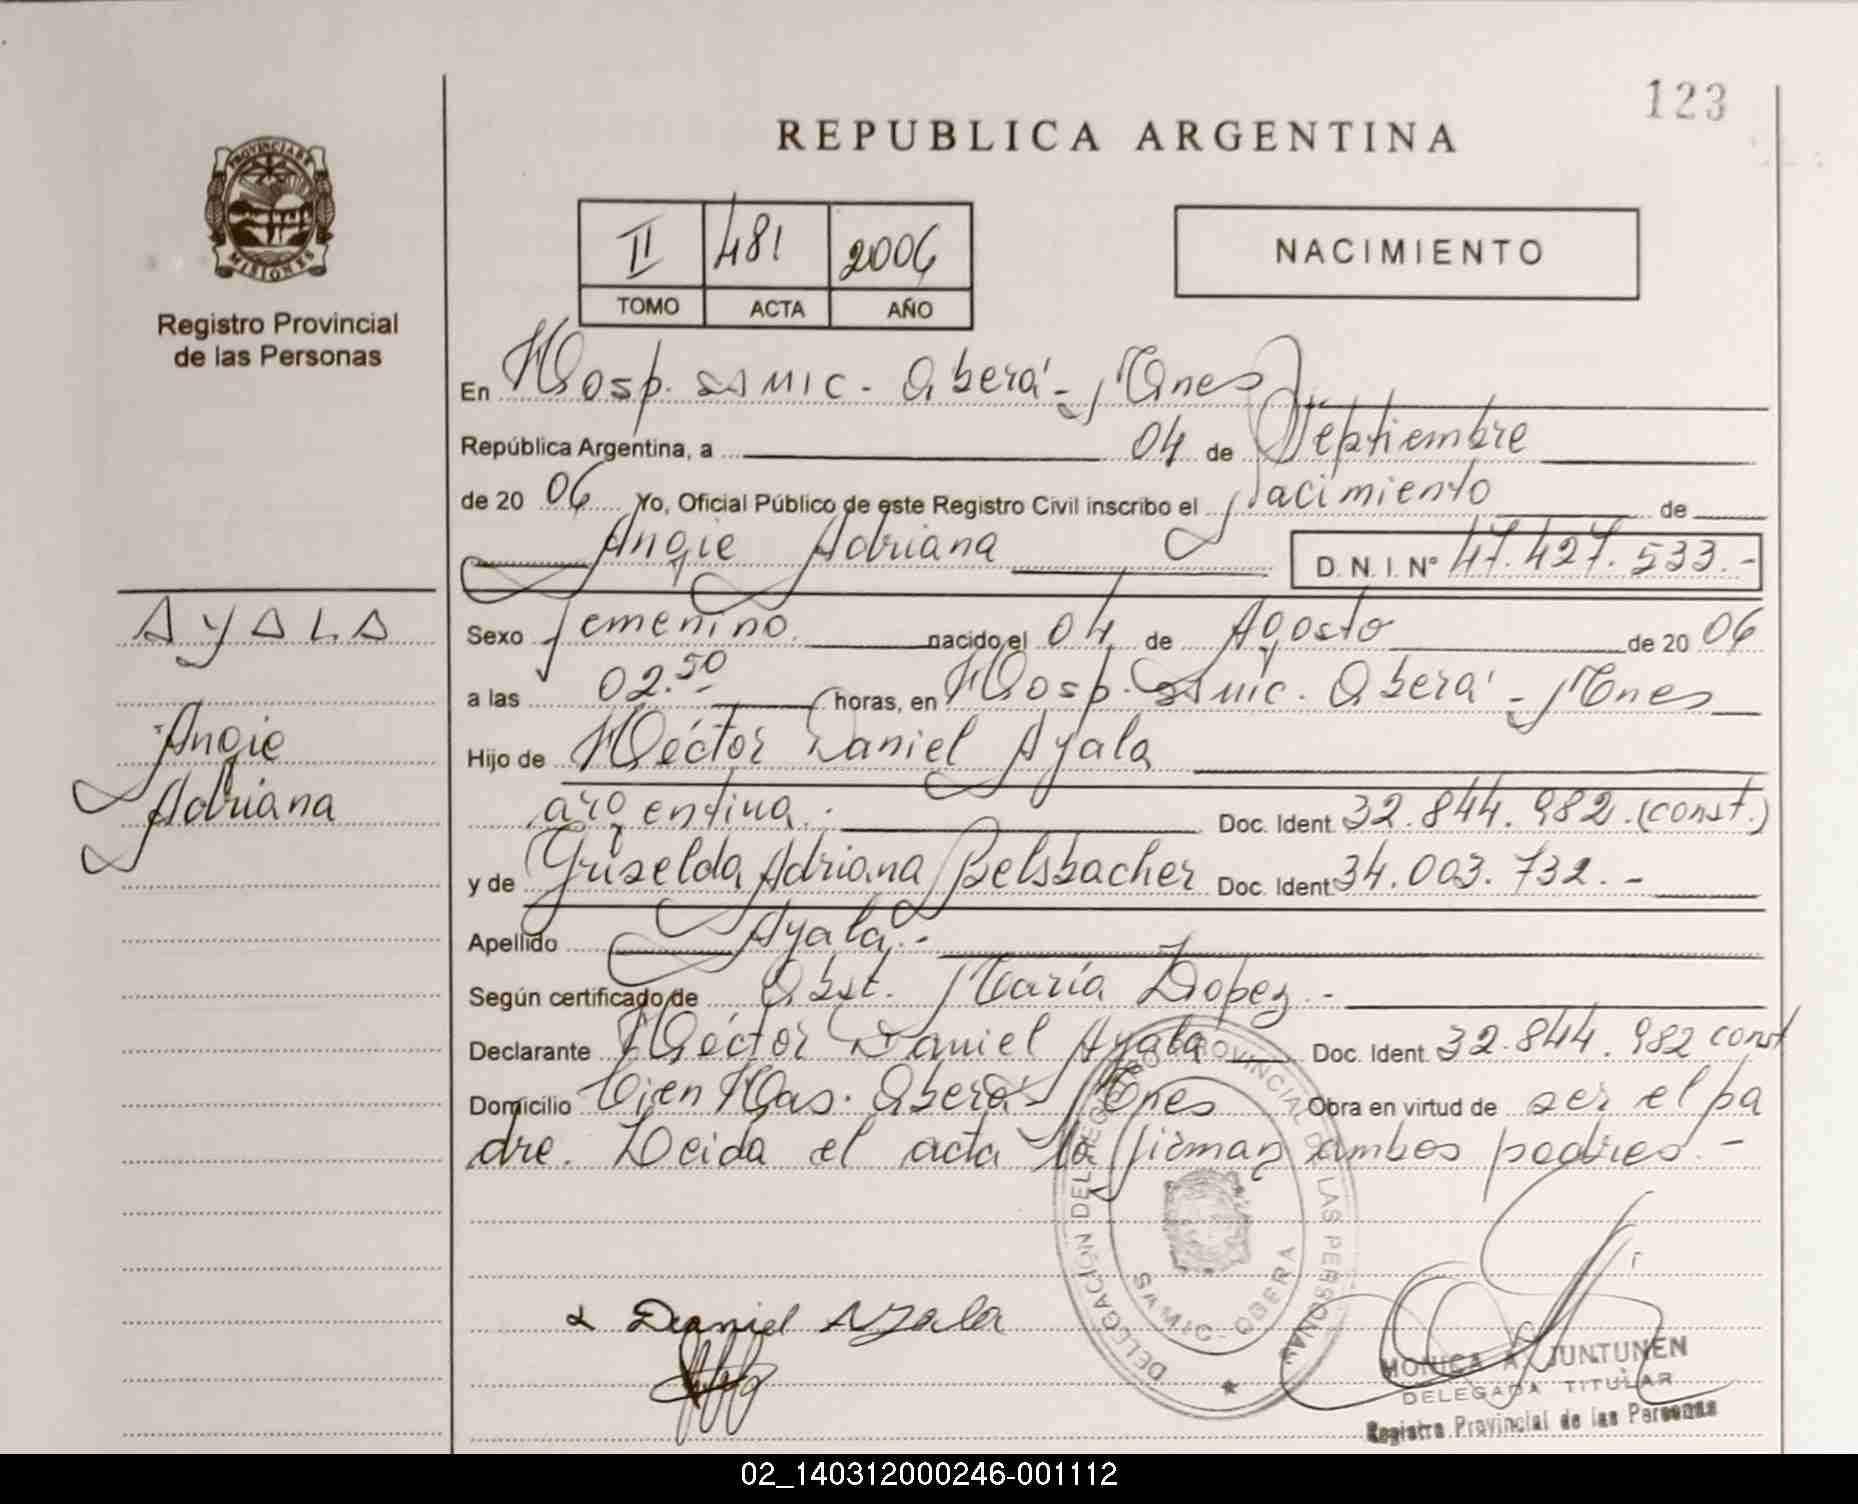 123
REPUBLICA ARGENTINA
PROVINCIA DE
MISIONES
Registro Provincial
de las Personas
II 481 2006
TOMO ACTA AÑO
NACIMIENTO
En Hosp. SAMIC - Oberá - Mnes
República Argentina, a 04 de Septiembre
de 20 06 Yo, Oficial Público de este Registro Civil inscribo el Nacimiento de
Angie Adriana D. N. I. Nº 47.427.533.-
AYALA
Angie
Adriana
Sexo femenino nacido el 04 de Agosto de 20 06
a las 02.50 horas, en Hosp. Samic. Oberá - Mnes
Hijo de Héctor Daniel Ayala
argentina.- Doc. Ident. 32.844.982.(const.)
y de Griselda Adriana Belsbacher Doc. Ident. 34.003.732.-
Apellido Ayala.-
Según certificado de Obst. María Lopez.-
Declarante Héctor Daniel Ayala Doc. Ident. 32.844.982 const
Domicilio Cien Has. Oberá - Mnes Obra en virtud de ser el pa
dre. Leida el acta la firman ambos padres.-
DELEGACIÓN DEL REGISTRO PROVINCIAL DE LAS PERSONAS
SAMIC - OBERA
Daniel Ayala
MONICA A. JUNTUNEN
DELEGADA TITULAR
Registro Provincial de las Personas
02_140312000246-001112